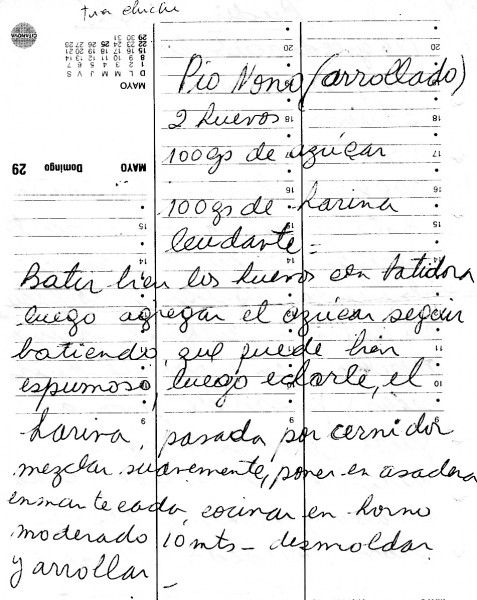 CITANOVA
MAYO
D L M M J V S
1 2 3 4 5 6 7
8 9 10 11 12 13 14
15 16 17 18 19 20 21
22 23 24 25 26 27 28
29 30 31
Pio Nono (arrollado)
2 huevos
100gs de azúcar
29 Domingo MAYO
100gs de harina
leudante =
Batir bien los huevos con batidora
luego agregar el azúcar seguir
batiendo, que quede bien
espumoso, luego echarle, el
harina, pasada por cernidor
mezclar suavemente, poner en asadera
enmantecada, cocinar en horno
moderado 10 mts - desmoldar
y arrollar -
20 20
18 18
17
16 16
15 15
14 14 14
12
11
10
9 9 9